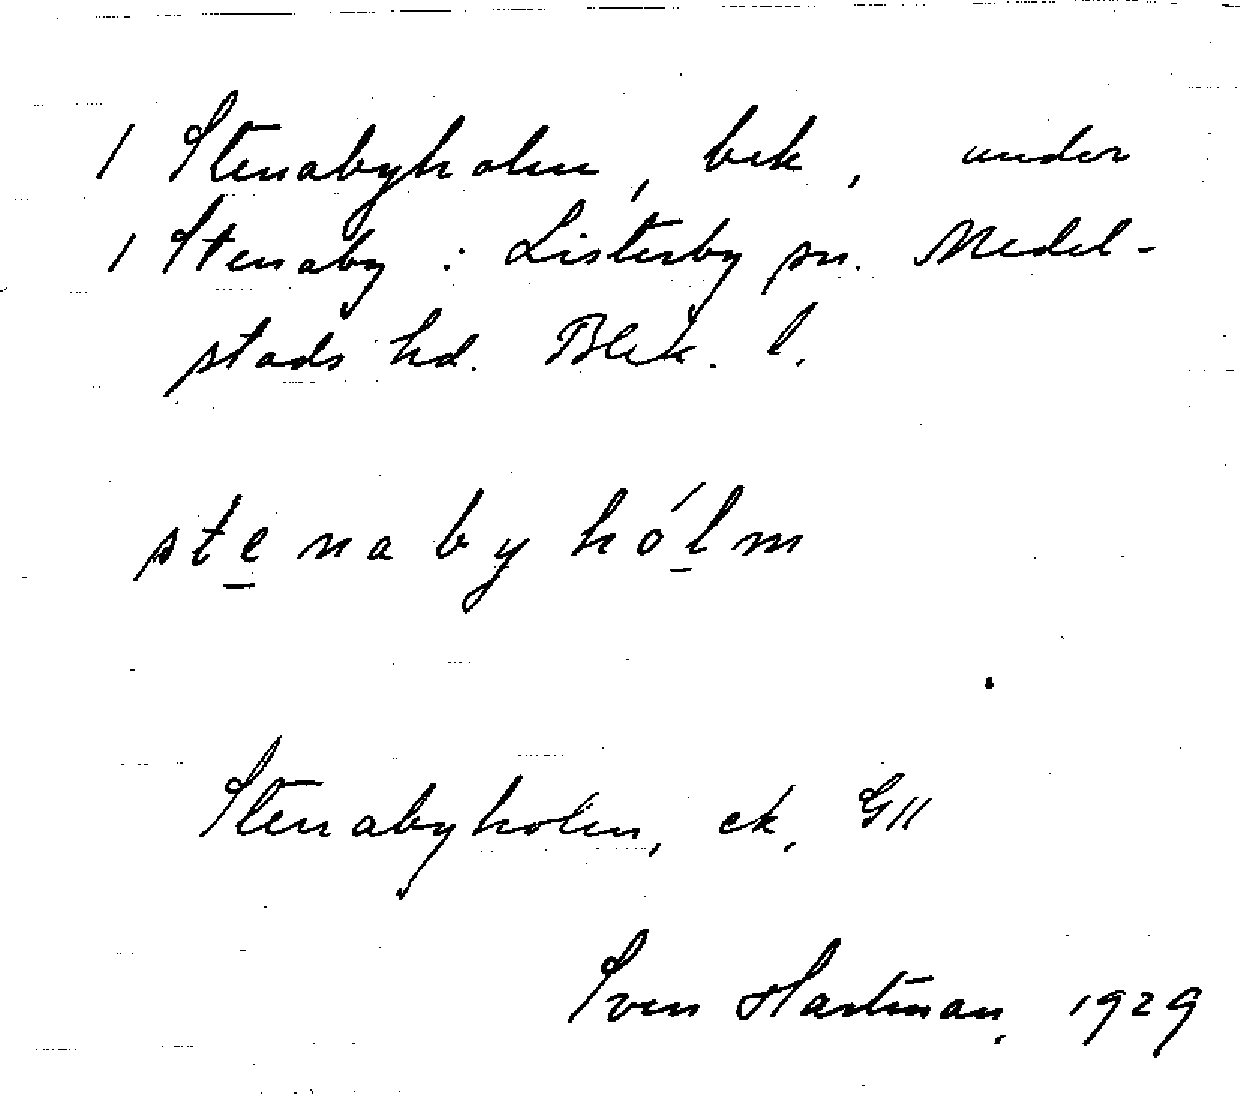 / Stenabyholm, bek, under
/ Stenaby : Listerby sn. Medel-
stads hd. Blek. l.
stenabyhólm
Stenabyholm, ek. GII
Sven Hartman, 1929